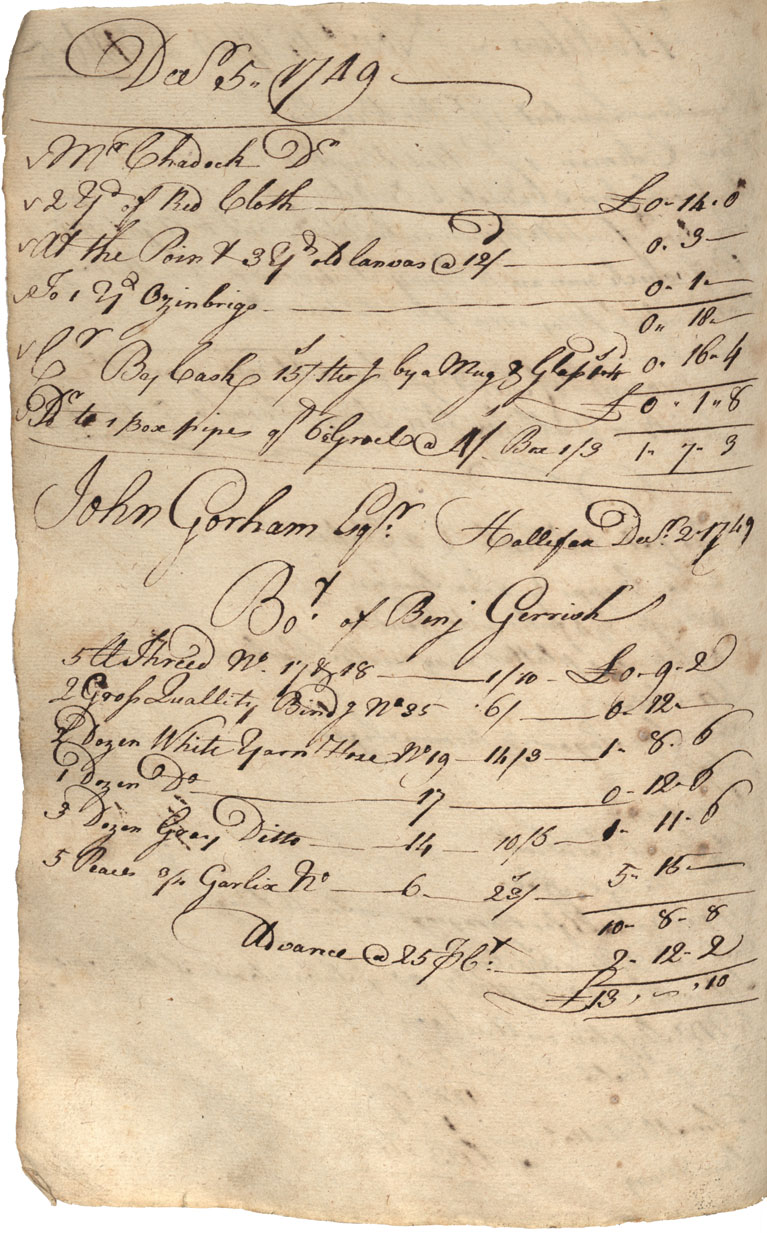 Decr. 5 1749
Mr Chadock Dr
2 Yd of Red Cloth £0-14-0
At the Point 3 Yd old Canvas @ 12/ 0-3-
To 1 Yd Ozinbrigs 0-1-
0-18-
Cr By Cash 15/ Sterg by a Mug & Glass 0-16-4
£0-1-8
Dr to 1 Box pipes qt 6 @ 4/ Box 1/3 1-7-3
John Gorham Esqr. Hallifax Decr. 2 1749
Bot. of Benj Gerrish
5 lb Thred No. 17 & 18 1/10 £0-9-2
2 Gross Quallity Bindg No 35 6/ 0-12-
2 Dozen White Yarn Hose No 19 14/3 1-8-6
1 Dozen Do 17 0-12-6
3 Dozen Gray Ditto 14 10/6 1-11-6
5 Peaces 3/4 Garlix No 6 23/ 5-15-
10-8-8
Advance @ 25 P Ct. 2-12-2
£13-"-10